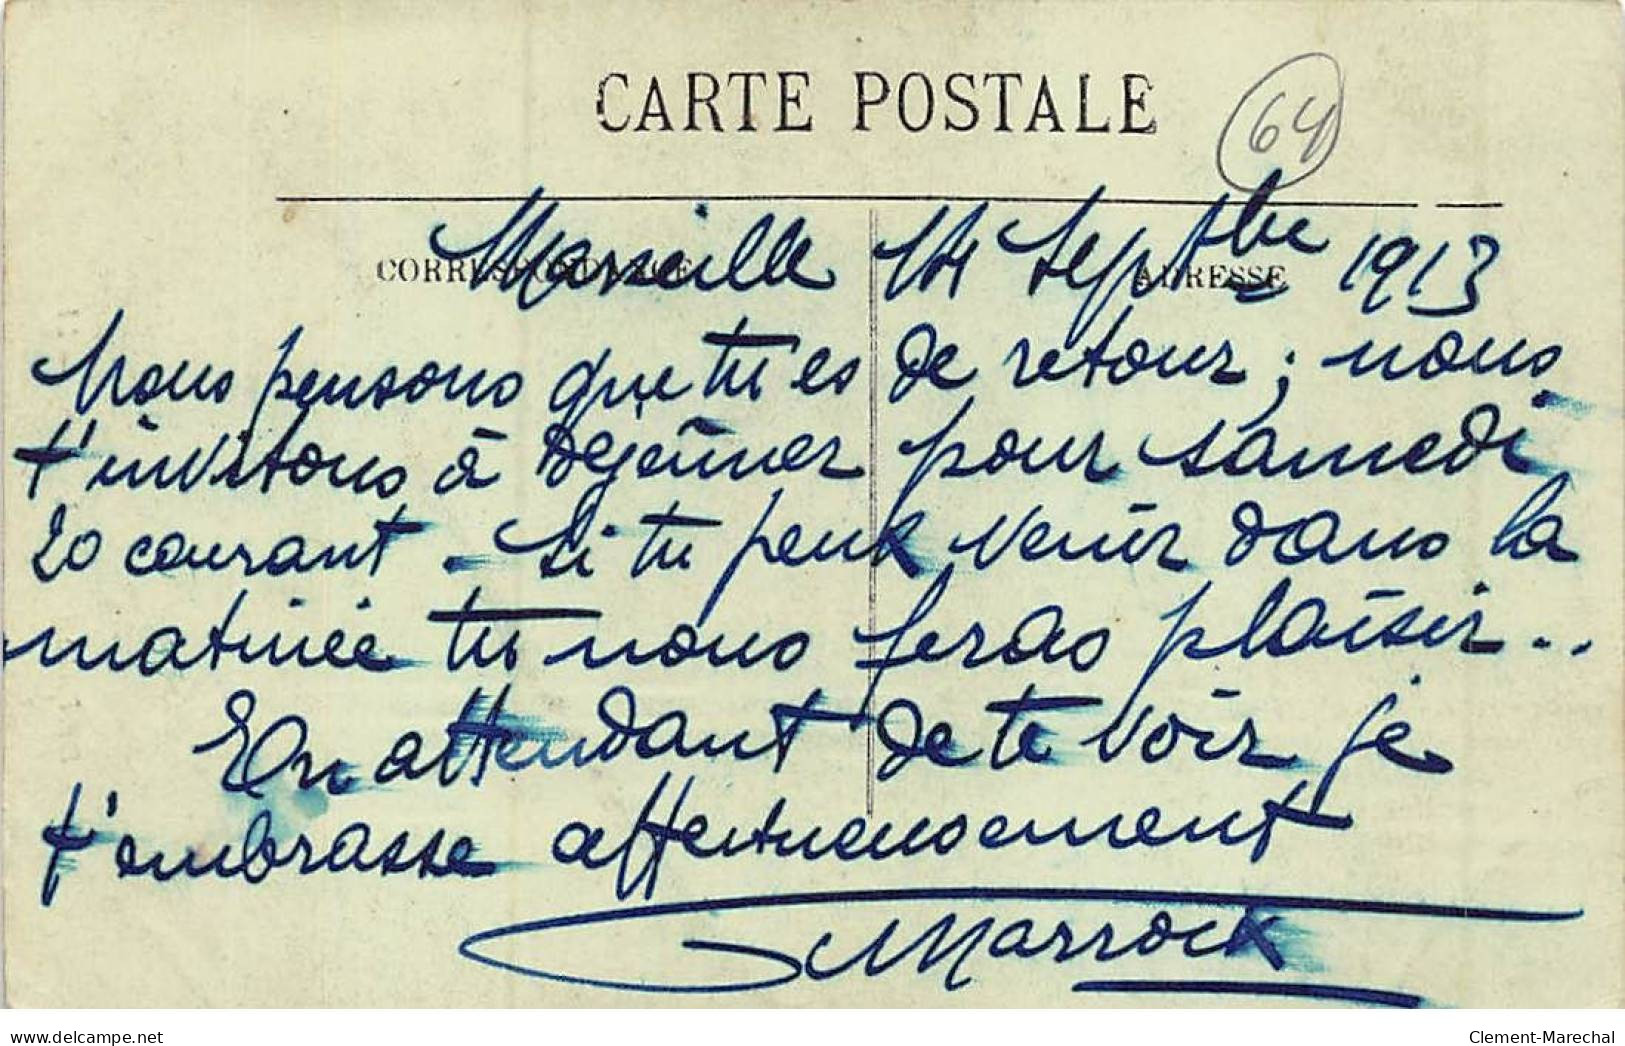 CARTE POSTALE
64
CORRESPONDANCE
ADRESSE
Marseille 14 Septbre 1913
Nous pensons que tu es de retour ; nous
t'invitons à Déjeûner pour samedi
20 courant - Si tu peux venir dans la
matinée tu nous feras plaisir ..
En attendant de te voir je
t'embrasse affectueusement
Marrock
delcampe.net
Clement-Marechal